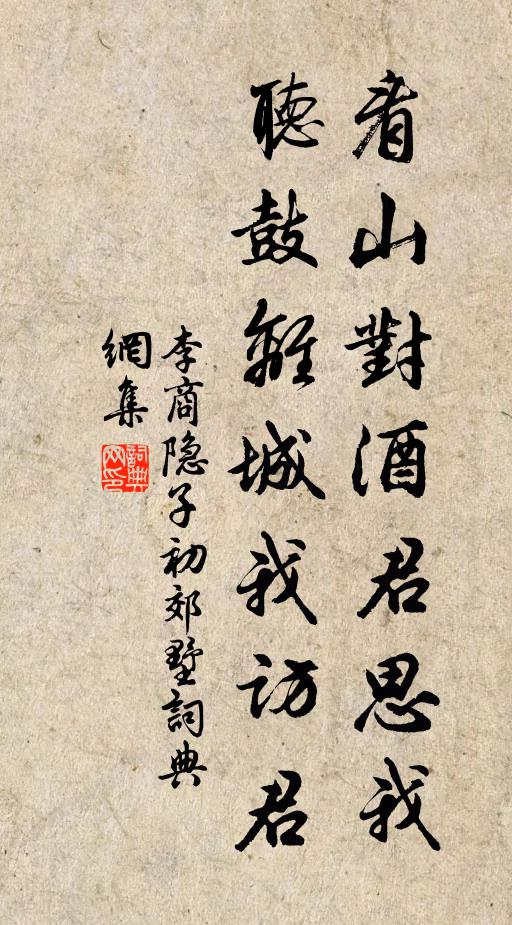 看山對酒君思我
聽鼓離城我訪君
李商隐子初郊墅詞典
網集
詞典
网印